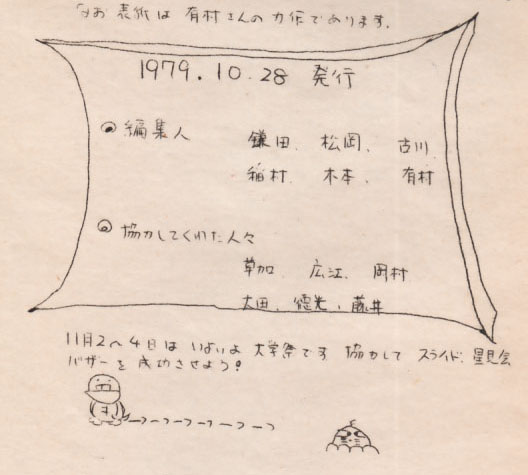 なお 表紙は 有村さんの力作であります.
1979.10.28 発行
◎ 編集人
鎌田. 松岡、 古川.
稲村. 木本、 有村
◎ 協力してくれた人々
草加、 広江、 岡村
太田、徳光、藤井
11月2〜4日は いよいよ 大学祭です 協力して スライド、星見会
バザーを 成功させよう!